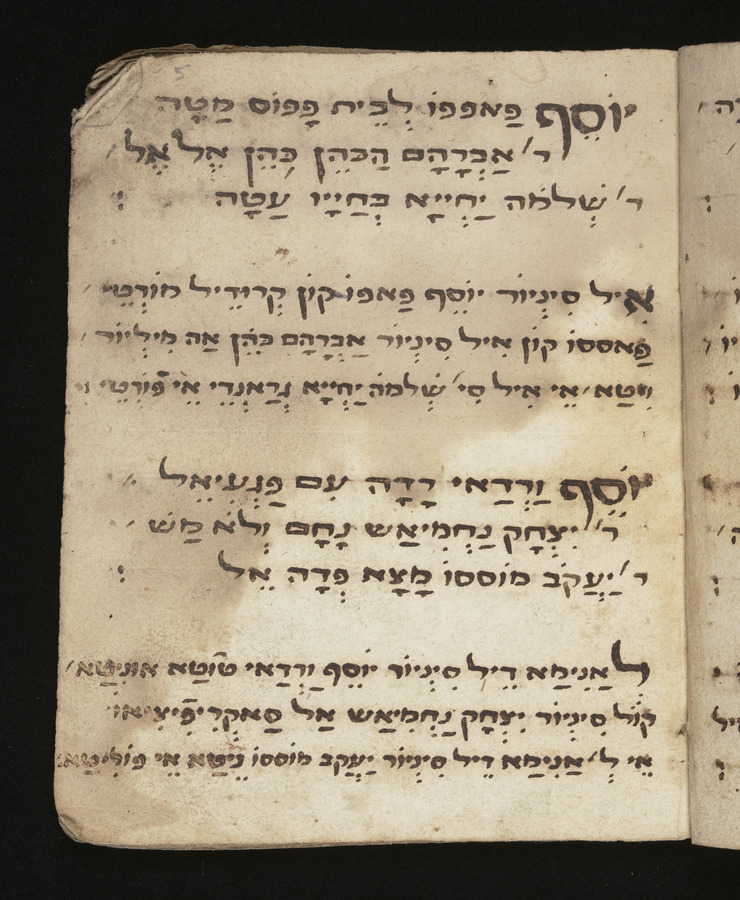 יוֹסֵף פַאפפוֹ לְבֵית פָפוֹס מַטָה
ר׳ אַבְרָהָם הַכֹּהֵן כְּהֵן אֶל אֵל
ר׳ שְׁלמֹה יַחְיָיא בְּחַיָיו עָטָה
אִיל סִינְיוֹר יוֹסֵף פַאפוֹ קוֹן קְרוּדֵיל מוֹרְטֵי
פַאססוֹ קוֹן אִיל סִינְיוֹר אַבְרָהָם כֹּהֵן אַה מִילְיוֹר
וִיטַא אֵי אִיל סִי׳ שְׁלמֹה יַחְיָיא גְרַאנְדֵי אֵי פוֹרְטֵי
יוֹסֵף וַרְדַאי רָדָה עִם פַּגְעִיאֵל
ר׳ יִצְחָק נַחְמִיאַש נָחָם וְלֹא מַשׁ
ר׳ יַעֲקֹב מוֹססוֹ מָצָא פְּדָה אֵל
לַאנִימַא דֵיל סִינְיוֹר יוֹסֵף וַרְדַאי טוּטַא אוּנִיטַא
קוֹל סִינְיוֹר יִצְחָק נַחְמִיאַש אַל סַאקְרִיפִיצִיאוֹ
אֵי לְ׳אַנִימַא דֵיל סִינְיוֹר יַעֲקֹב מוֹססוֹ נֵיטַא אֵי פוֹלִיטַא